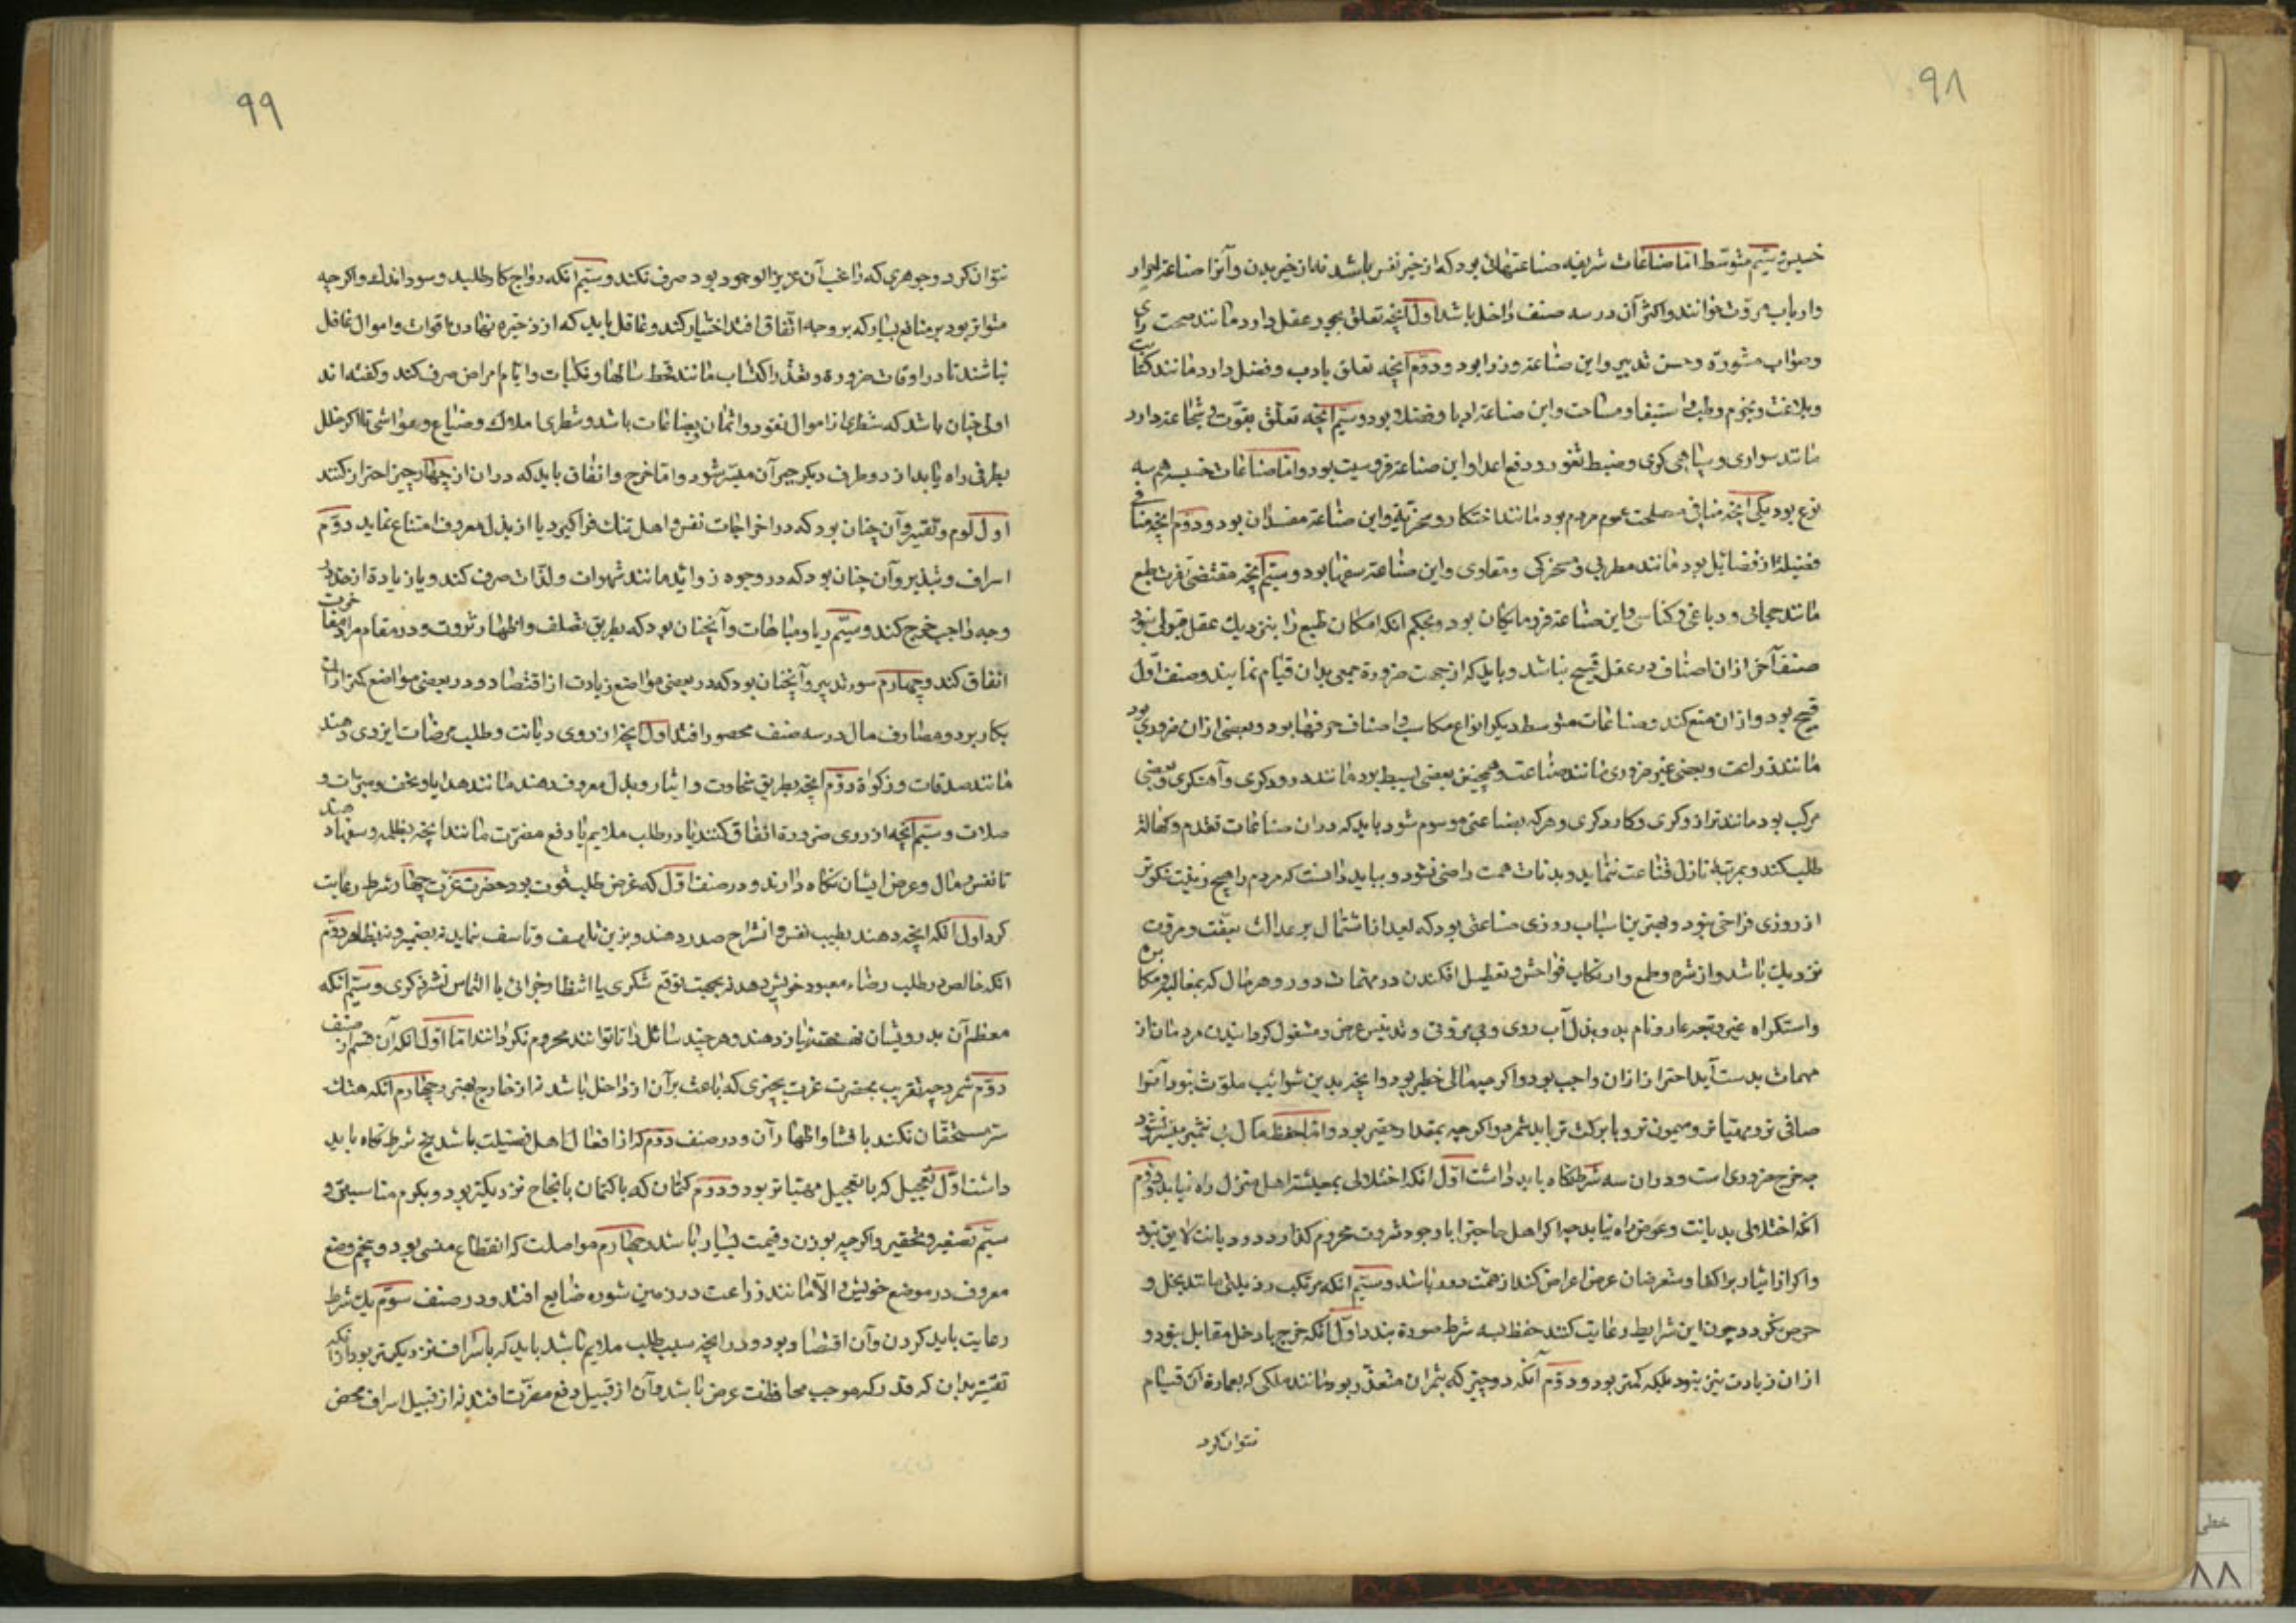 ۹۸
خسیس سیم متوسط اما صناعات شریفه صناعتهائی بود که از خیر نفس باشد نه از خیر بدن و آنرا صناعة احرار
وارباب مروّت خوانند و اکثر آن در سه صنف داخل باشد اول آنچه تعلق بجوهر عقل دارد مانند صحت رای
وصواب مشورة وحسن تدبیر و این صناعة وزرا بود و دوّم آنچه تعلق بادب و فضل دارد مانند کتابت
وبلاغت و نجوم و طب و استیفا و مساحت و این صناعة ادبا وفضلا بود و سیّم آنچه تعلّق بقوّت و شجاعة دارد
مانند سواری و سپاهی کری و ضبط ثغور و دفع اعدا و این صناعة فروسیت بود و اما صناعات خسیسه هم سه
نوع بود یکی آنچه منافی مصلحت عموم مردم بود مانند احتکار و سحر و این صناعة مفسدان بود و دوّم آنچه منافی
فضیلة از فضائل بود مانند مطربی و مسخرکی و مقامری و این صناعة سفها بود و سیّم آنچه مقتضی نفرت طبع
مانند حجامی و دباغی و کناسی و این صناعة فرومایکان بود و بحکم آنکه احکام طبع را بنزدیک عقل قبولی نبود
صنف آخر ازان اصناف در عقل قبیح نباشد و باید که از جهت ضرورة جمعی بدان قیام نمایند و صنف اوّل
قبیح بود و ازان منع کند و صناعات متوسط دیکر انواع مکاسب و اصناف حرفتها بود و بعضی ازان ضروری بود
مانند زراعت و بعضی غیر ضروری مانند صناعت و همچنین بعضی بسیط بود مانند درودکری و آهنکری و بعضی
مرکب بود مانند ترازوکری و کاردکری و هر که بصناعتی موسوم شود باید که دران صناعات تقدم و کمال
طلب کند و بمرتبه نازل قناعت ننماید و بدنائت همت راضی نشود و بباید دانست که مردم را هیچ زینت نکوتر
از روزی فراخ نبود و بهترین اسباب روزی صناعتی بود که بعد از اشتمال بر عدالت بعفّت و مروّت
نزدیک باشد و از شره و طمع و ارتکاب فواحش و تعطیل افکندن در مهمات دور و هر مال که بمغالبه و مکابره
واستکراه غیر و تبعه عار و نام بد و بذل آب روی و بی مروّتی و تدنیس عرض و مشغول کردانیدن مردمان از
مهمات بدست آید احتراز ازان واجب بود و اکر چه مالی خطیر بود و آنچه بدین شوائب ملوّث نبود آنرا
صافی تر و مهنّا تر و میمون تر و با برکت تر باید شمرد و اکر چه بمقدار حقیر بود و اما حفظ مال بی تثمیر میسّر نشود
چه خرج ضروری است و دران سه شرط نکاه باید داشت اوّل آنکه اختلالی بمعیشت اهل منزل راه نیابد و دوّم
آنکه اختلالی بدیانت و عرض راه نیابد چه اکر اهل حاجترا با وجود ثروت محروم کذارد در دیانت لایق نبود
و اکر از ایثار بر اکفا و متعرضان عرض اعراض کند از همّت دور باشد و سیّم آنکه مرتکب رذیلتی مانند بخل و
حرص نکردد چون این شرایط رعایت کنند حفظ بسه شرط صورة بندد اوّل آنکه خرج با دخل مقابل نبود و
ازان زیادت نیز نبود بلکه کمتر بود و دوّم آنکه در چیزی که تثمیر آن متعذّر بود مانند ملکی که بعمارة آن قیام
نتوان کرد
۹۹
نتوان کرد و جوهری که راغب آن عزیز الوجود بود صرف نکند و سیّم آنکه رواج کار طلبد و سود اندک و اکر چه
متواتر بود بر منافع بسیار که بر وجه اتّفاق افتد اختیار کند و عاقل باید که از ذخیره نهادن اقوات و اموال غافل
نباشد تا در اوقات ضرورة و تعذّر اکتساب مانند قحط سالها و نکبات و ایّام امراض صرف کند و کفته اند
اولی چنان باشد که شطری از اموال نقود و اثمان بضاعات باشد و شطری املاک و ضیاع و مواشی تا اکر خلل
بطرفی راه یابد از دو طرف دیکر جبر آن میسّر شود و اما خرج و انفاق باید که دران از چهار چیز احتراز کنند
اول لوم و تقتیر و آن چنان بود که در اخراجات نفس و اهل تنک فرا کیرد یا از بذل معروف امتناع نماید دوّم
اسراف و تبذیر و آن چنان بود که در وجوه زوائد مانند شهوات و لذّات صرف کند و یا زیادة از حد در
وجه واجب خرج کند و سیّم ریا و مباهات و آنچنان بود که بطریق تصلف و اظهار ثروت و در مقام مرا و مفاخرت
انفاق کند و چهارم سوء تدبیر و آنچنان بود که در بعضی مواضع زیادت از اقتصاد و در بعضی مواضع کمتر ازان
بکار برد و مصارف مال در سه صنف محصور افتد اول آنچه از روی دیانت و طلب مرضات ایزدی دهند
مانند صدقات و زکوة دوّم آنچه بطریق سخاوت و ایثار و بذل معروف دهند مانند هدایا و تحف و مبرّات و
صلات و سیّم آنچه از روی ضرورة انفاق کنند یا در طلب ملایم یا دفع مضرّت مانند آنچه بظلمه و سفها دهند
تا نفس و مال و عرض ایشان نکاه دارند و در صنف اوّل که غرض طلب قربت بود حضرت عزّت چهار شرط رعایت
کرد اول آنکه آنچه دهند بطیب نفس و انشراح صدر دهند و برین تلهف و تاسف ننماید نه بضمیر و نه بظاهر دوّم
آنکه خالص در طلب رضاء معبود خویش دهد نه بجهت توقع شکری یا انتظار جزائی یا التماس نشر ذکری و سیّم آنکه
معظم آن بدرویشان نهفته نیاز دهند و هر چند سائل را تا توانند محروم نکردانند اما اوّل آنکه آن قسم از صنف
دوّم شمرد چه تقرب بحضرت عزت بچیزی که باعث بر آن از داخل باشد نه از خارج بهتر و چهارم آنکه هتک
ستر مستحقّان نکند بافشا و اظهار آن و در صنف دوّم که از افعال اهل فضیلت باشد پنج شرط نکاه باید
داشت اوّل تعجیل که با تعجیل مهنّا تر بود و دوّم کتمان که با کتمان بانجاح نزدیکتر بود و بکرم مناسبتر و
سیّم تصغیر و تحقیر و اکر چه بوزن و قیمت بسیار باشد و چهارم مواصلت که انقطاع منسی بود و پنجم وضع
معروف در موضع خویش و الّا مانند زراعت در زمین شوره ضایع افتد و در صنف سوّم یک شرط
رعایت باید کردن و آن اقتصاد بود و در آنچه سبب طلب ملایم باشد باید که باسراف نزدیکتر بود ازآنکه
تقتیر بدان که قدر که موجب محافظت عرض باشد و آن از قبیل دفع مضرّت افتد نه از قبیل اسراف محض
خطی
۸۸